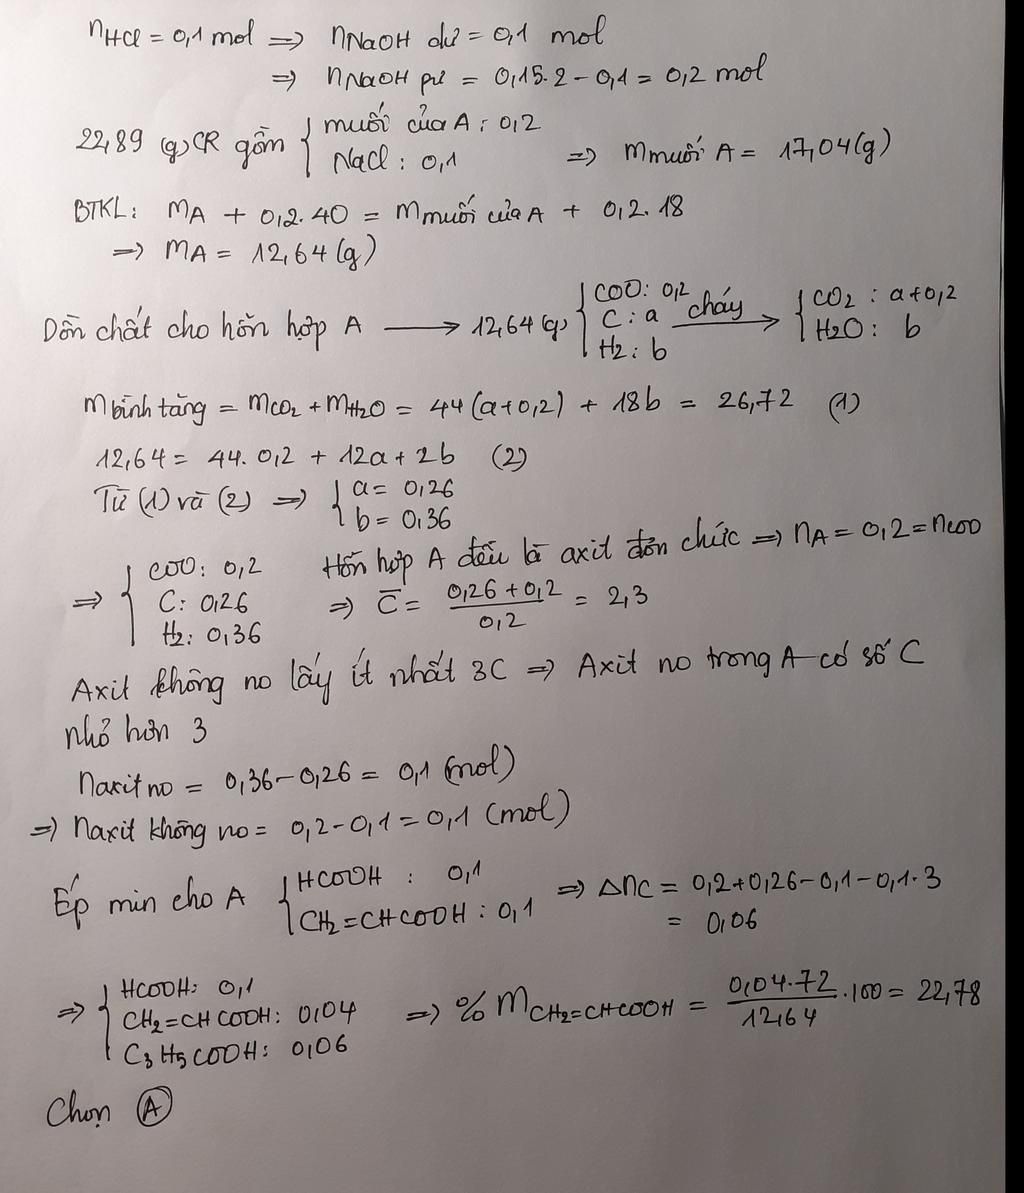 nHCl = 0,1 mol => nNaOH dư = 0,1 mol
=> nNaOH pư = 0,15.2 - 0,1 = 0,2 mol
22,89 (g) CR gồm { muối của A : 0,2
NaCl : 0,1 => mmuối A = 17,04 (g)
BTKL: mA + 0,2.40 = mmuối của A + 0,2.18
=> mA = 12,64 (g)
Dồn chất cho hỗn hợp A → 12,64 (g) { COO: 0,2 C: a H2: b cháy → { CO2 : a+0,2 H2O : b
mbình tăng = mCO2 + mH2O = 44(a+0,2) + 18b = 26,72 (1)
12,64 = 44.0,2 + 12a + 2b (2)
Từ (1) và (2) => { a = 0,26
b = 0,36
=> { COO: 0,2 C: 0,26 H2: 0,36
Hỗn hợp A đều là axit đơn chức => nA = 0,2 = nCOO
=> C̅ = (0,26 + 0,2)/0,2 = 2,3
Axit không no lấy ít nhất 3C => Axit no trong A có số C
nhỏ hơn 3
naxit no = 0,36 - 0,26 = 0,1 (mol)
=> naxit không no = 0,2 - 0,1 = 0,1 (mol)
Ép min cho A { HCOOH : 0,1 CH2=CHCOOH : 0,1 => ΔnC = 0,2+0,26-0,1-0,1.3
= 0,06
=> { HCOOH: 0,1
CH2=CHCOOH: 0,04 => %mCH2=CHCOOH = 0,04.72/12,64 .100 = 22,78
C3H5COOH: 0,06
Chọn A